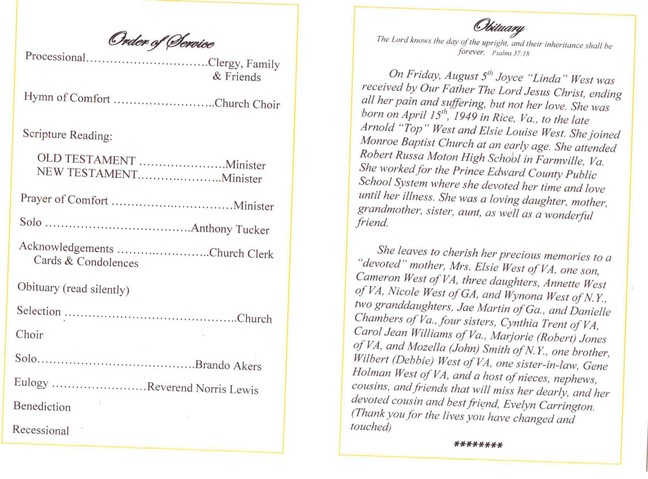 Order of Service
Processional…………………………Clergy, Family
& Friends
Hymn of Comfort …………………….Church Choir
Scripture Reading:
OLD TESTAMENT …………………Minister
NEW TESTAMENT………………..Minister
Prayer of Comfort …………………………Minister
Solo ……………………………….Anthony Tucker
Acknowledgements …………………..Church Clerk
Cards & Condolences
Obituary (read silently)
Selection …………………………………….Church
Choir
Solo…………………………………Brando Akers
Eulogy ……………………Reverend Norris Lewis
Benediction
Recessional
Obituary
The Lord knows the day of the upright, and their inheritance shall be
forever. Psalms 37:18
On Friday, August 5th Joyce “Linda” West was
received by Our Father The Lord Jesus Christ, ending
all her pain and suffering, but not her love. She was
born on April 15th, 1949 in Rice, Va., to the late
Arnold “Top” West and Elsie Louise West. She joined
Monroe Baptist Church at an early age. She attended
Robert Russa Moton High School in Farmville, Va.
She worked for the Prince Edward County Public
School System where she devoted her time and love
until her illness. She was a loving daughter, mother,
grandmother, sister, aunt, as well as a wonderful
friend.
She leaves to cherish her precious memories to a
“devoted” mother, Mrs. Elsie West of VA, one son,
Cameron West of VA, three daughters, Annette West
of VA, Nicole West of GA, and Wynona West of N.Y.,
two granddaughters, Jae Martin of Ga., and Danielle
Chambers of Va., four sisters, Cynthia Trent of VA,
Carol Jean Williams of Va., Marjorie (Robert) Jones
of VA, and Mozella (John) Smith of N.Y., one brother,
Wilbert (Debbie) West of VA, one sister-in-law, Gene
Holman West of VA, and a host of nieces, nephews,
cousins, and friends that will miss her dearly, and her
devoted cousin and best friend, Evelyn Carrington.
(Thank you for the lives you have changed and
touched)
********